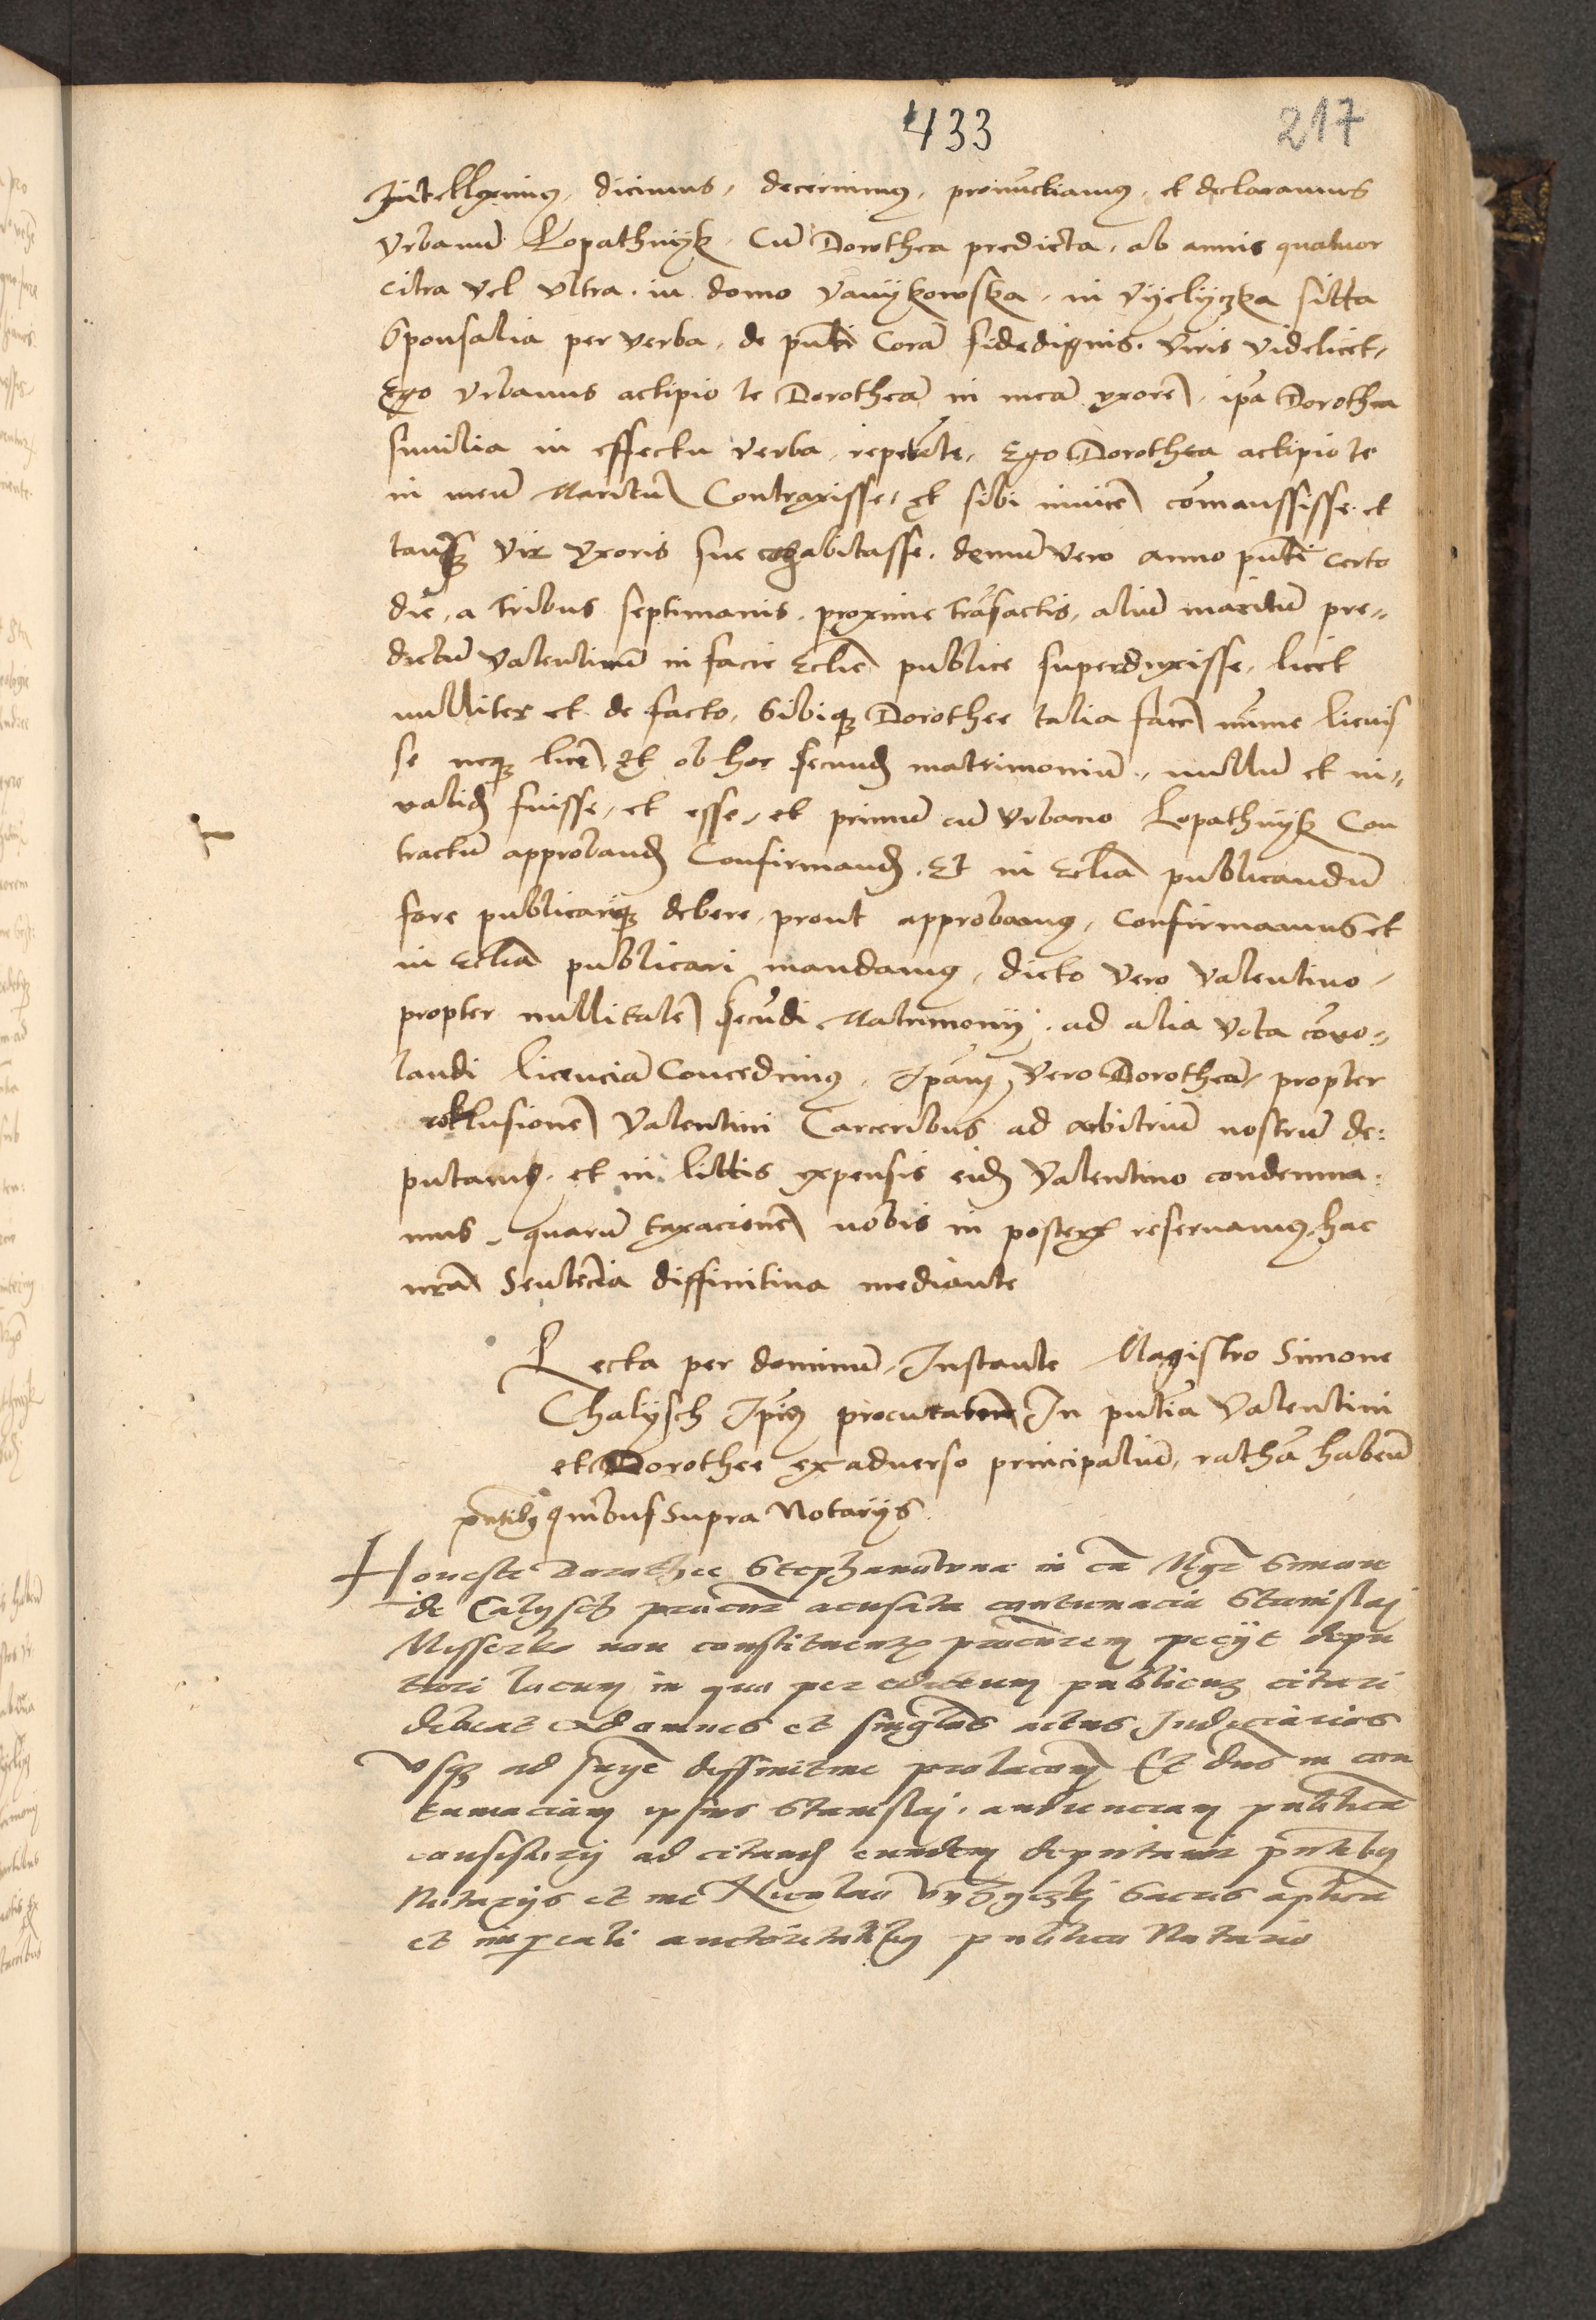 433
217
Intelleximus, dicimus, decernimus, pronunctiamus, et declaramus
Urbanum Lopathnyk, Cum Dorothea predicta, ab annis quatuor
citra vel ultra, in domo Vanykowska, in Vyelyczka sitta
Sponsalia per verba, de pnti Coram fidedignis, viris videlicet,
Ego Urbanus actipio te Dorotheam in meam uxorem, ipa Dorothea
similia in effectu verba, repetente, Ego Dorothea actipio te
in meum Maritum Contraxisse, Et sibi invicem comansisse et
tanqz vir uxoris sue cohabitasse, demum vero anno pnti certo
die, a tribus septimanis, proxime transactis, alium maritum pre„
dictum Valentinum in facie Ecclie publice superduxisse, licet
nulliter et de facto, Sibiqz Dorothee talia facere minime licuis
se neqz licere, Et ob hoc secundum matrimonium, nullum et in„
validum fuisse, et esse, et primum cum Urbano Lopathnyk Con
tractum approbandum Confirmandum, Et in Ecclia publicandum
fore publicariqz debere, prout approbamus, Confirmamus et
in Ecclia publicari mandamus, dicto vero Valentino,
propter nullitatem secundi Matrimonij, ad alia vota convo„
landi licenciam Concedimus, Ipam vero Dorotheam, propter
Valentini Carceribus ad arbitrium nostrum de:
putamus, et in littis expensis eidem Valentino condemna:
mus, quarum taxacionem nobis in posterum reservamus, hac
nra Sentencia diffinitiva mediante
Lecta per dominum, Instante Magistro Simone
Chalysch Ipius procuratore In pntia Valentini
et Dorothee ex adverso principalium, ratham habentium
pntibus quibus supra Notarijs
Honeste Dorothee in ca Mgr Simon
de Calysch procur acusata contumacia Stanislaj
non constituentis procurem pecijt depu
tari locum in quo per edictum publicum citari
debeat ad omnes et singulos actus Judiciarios
usqz ad snie diffinitive prolacoem Et dns in con
tumaciam ipsius Stanislaj, audienciam publicam
consistorij ad citand eundem deputavit pntibus
Notarijs et me Nicolao Sacris aplica
et imperiali auctoritatibus publico Notario